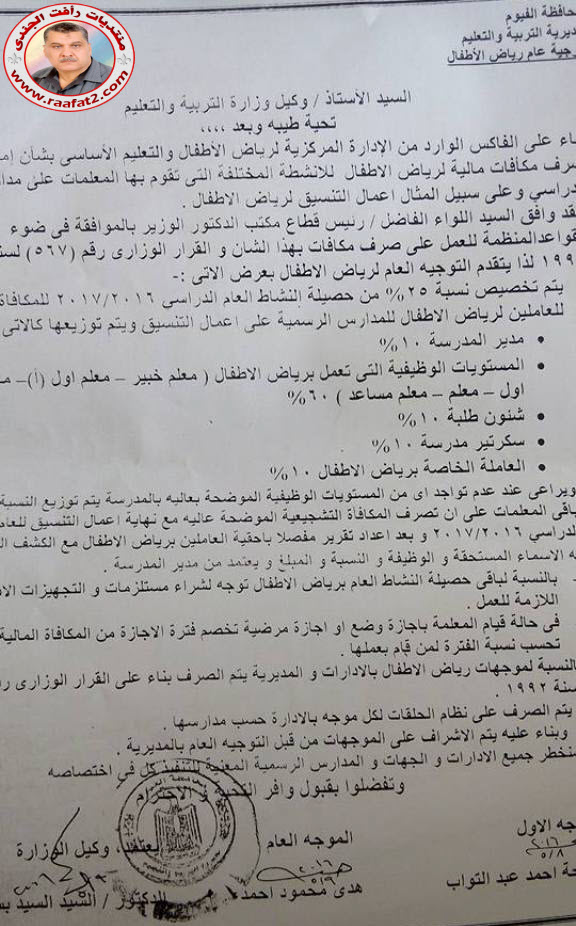 منتديات رأفت الجندى
www.raafat2.com
حافظة الفيوم
ديرية التربية والتعليم
جية عام رياض الأطفال
السيد الأستاذ / وكيل وزارة التربية والتعليم
تحية طيبه وبعد ,,,,
ناء على الفاكس الوارد من الإدارة المركزية لرياض الأطفال والتعليم الأساسى بشأن
صرف مكافات مالية لرياض الاطفال للانشطة المختلفة التى تقوم بها المعلمات على
دراسي وعلى سبيل المثال اعمال التنسيق لرياض الاطفال .
قد وافق السيد اللواء الفاضل / رئيس قطاع مكتب الدكتور الوزير بالموافقة فى ضوء
قواعدالمنظمة للعمل على صرف مكافات بهذا الشان و القرار الوزارى رقم (٥٦٧) لسن
١٩٩ لذا يتقدم التوجيه العام لرياض الاطفال بعرض الاتى :-
يتم تخصيص نسبة ٢٥% من حصيلة النشاط العام الدراسى ٢٠١٧/٢٠١٦ للمكافاة
للعاملين لرياض الاطفال للمدارس الرسمية على اعمال التنسيق ويتم توزيعها كالاتى
• مدير المدرسة ١٠%
• المستويات الوظيفية التى تعمل برياض الاطفال ( معلم خبير – معلم اول (أ)– مـ
اول – معلم – معلم مساعد ) ٦٠%
• شئون طلبة ١٠%
• سكرتير مدرسة ١٠%
• العاملة الخاصة برياض الاطفال ١٠%
ويراعى عند عدم تواجد اى من المستويات الوظيفية الموضحة بعاليه بالمدرسة يتم توزيع النسبة
باقى المعلمات على ان تصرف المكافأة التشجيعية الموضحة عاليه مع نهاية اعمال التنسيق للعا
لدراسى ٢٠١٧/٢٠١٦ و بعد اعداد تقرير مفصلا باحقية العاملين برياض الاطفال مع الكشف
ه الاسماء المستحقة و الوظيفة و النسبة و المبلغ و يعتمد من مدير المدرسة .
بالنسبة لباقى حصيلة النشاط العام برياض الاطفال توجه لشراء مستلزمات و التجهيزات
اللازمة للعمل .
فى حالة قيام المعلمة باجازة وضع او اجازة مرضية تخصم فترة الاجازة من المكافاة المالية
تحسب نسبة الفترة لمن قام بعملها .
بالنسبة لموجهات رياض الاطفال بالادارات و المديرية يتم الصرف بناء على القرار الوزارى
سنة ١٩٩٢ .
يتم الصرف على نظام الحلقات لكل موجه بالادارة حسب مدارسها .
وبناء عليه يتم الاشراف على الموجهات من قبل التوجيه العام بالمديرية .
خطر جميع الادارات و الجهات و المدارس الرسمية المعنية للتنفيذ كل فى اختصاصه
وتفضلوا بقبول وافر التحية و الاحترام
جه الاول
الموجه العام
يعتمد، وكيل الوزارة
حة احمد عبد التواب
هدى محمود احمد
الدكتور / السيد السيد